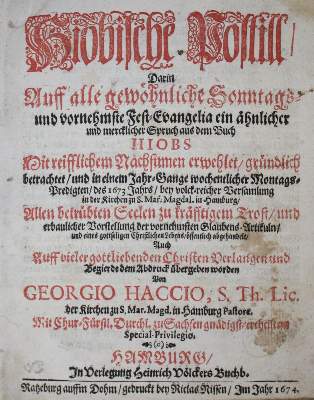 Hiobische Postill/
Darin
Auff alle gewöhnliche Sonntags-
und vornehmste Fest-Evangelia ein ähnlicher
und mercklicher Spruch aus dem Buch
HIOBS
Mit reifflichem Nachsinnen erwehlet/ gründlich
betrachtet/ und in einem Jahr-Gange wochentlicher Montags-
Predigten/ des 1673 Jahrs/ bey volck-reicher Versamlung
in der Kirchen zu S. Mar. Magdal. in Hamburg/
Allen betrübten Seelen zu kräfftigem Trost/ und
erbaulicher Vorstellung der vornehmsten Glaubens-Artikuln/
und eines gottseligen Christlichen Lebens/ öffentlich abgehandelt/
Auch
Auff vieler gottliebenden Christen Verlangen und
Begierde dem Abdruck übergeben worden
Von
GEORGIO HACCIO, S. Th. Lic.
der Kirchen zu S. Mar. Magd. in Hamburg Pastore.
Mit Chur-Fürstl. Durchl. zu Sachsen gnädigst/ ertheiltem
Special-Privilegio.
HAMBURG/
In Verlegung Heinrich Völckers Buchh.
Ratzeburg auffm Dohm/ gedruckt bey Niclas Nissen/ Im Jahr 1674.